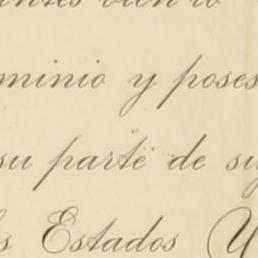 bien lo
minio y poses
su parte de su
s Estados U